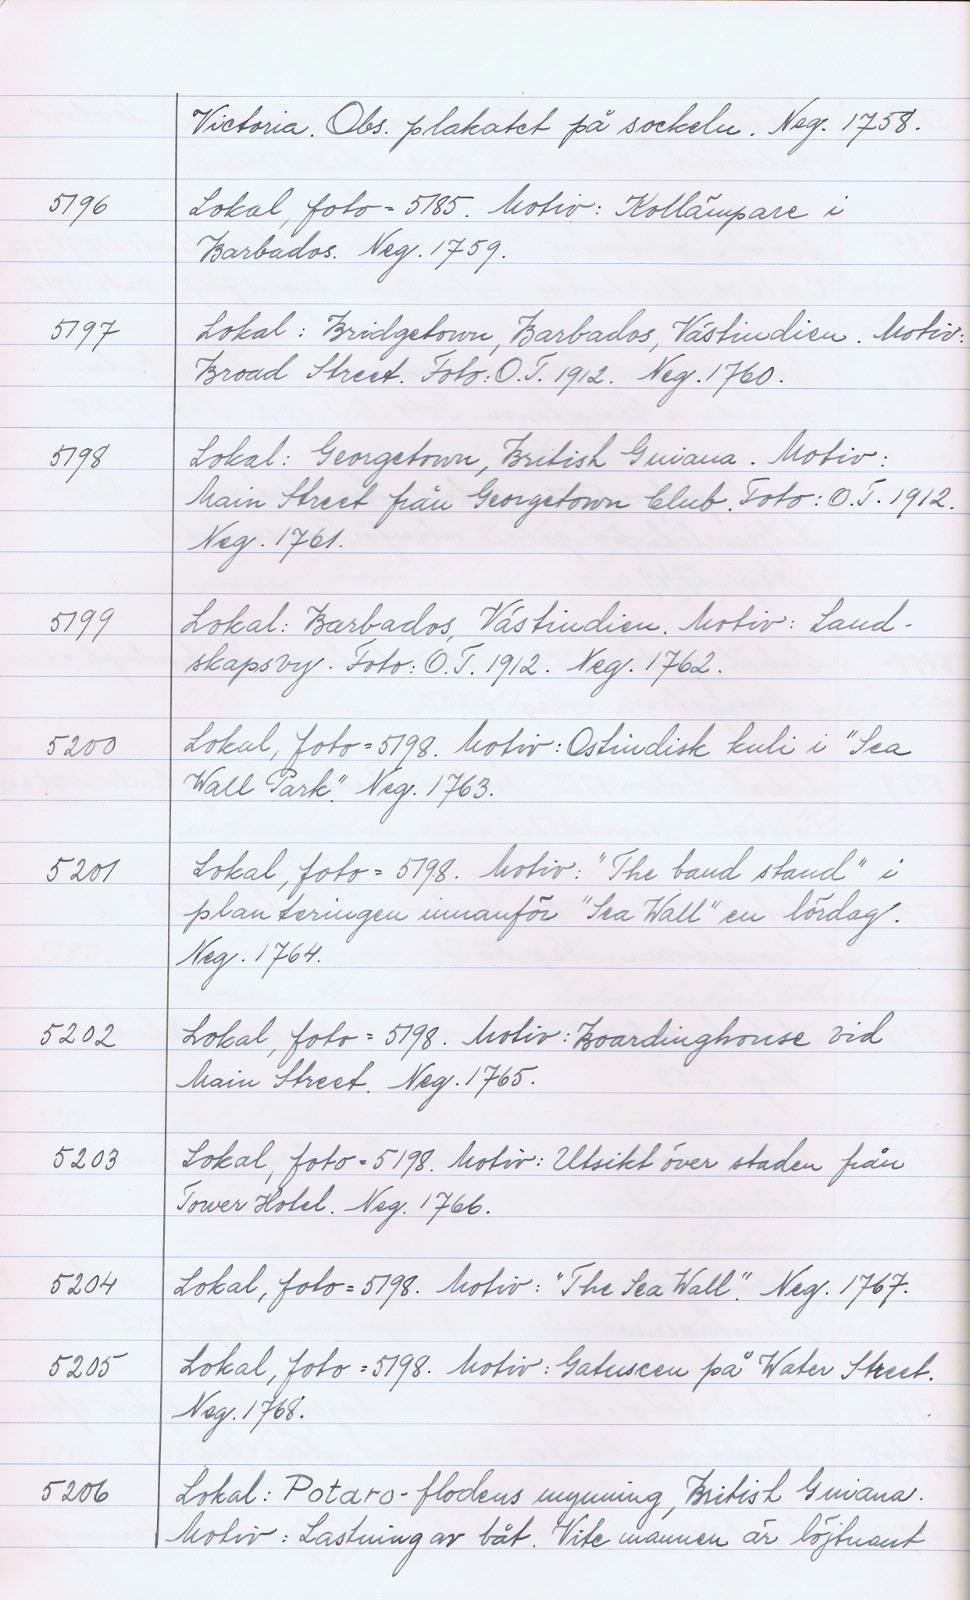 Victoria. Obs. plakatet på sockeln. Neg. 1758.
5196 Lokal, foto = 5185. Motiv: Kollämpare i
Barbados. Neg. 1759.
5197 Lokal: Bridgetown, Barbados, Västindien. Motiv:
Broad Street. Foto: O.T. 1912. Neg. 1760.
5198 Lokal: Georgetown, British Guiana. Motiv:
Main Street från Georgetown Club. Foto: O.T. 1912.
Neg. 1761.
5199 Lokal: Barbados, Västindien. Motiv: Land-
skapsvy. Foto: O.T. 1912. Neg. 1762.
5200 Lokal, foto = 5198. Motiv: Ostindisk kuli i "Sea
Wall Park". Neg. 1763.
5201 Lokal, foto = 5198. Motiv: "The band stand" i
planteringen innanför "Sea Wall" en lördag.
Neg. 1764.
5202 Lokal, foto = 5198. Motiv: Boardinghouse vid
Main Street. Neg. 1765.
5203 Lokal, foto = 5198. Motiv: Utsikt över staden från
Tower Hotel. Neg. 1766.
5204 Lokal, foto = 5198. Motiv: "The Sea Wall". Neg. 1767.
5205 Lokal, foto = 5198. Motiv: Gatuscen på Water Street.
Neg. 1768.
5206 Lokal: Potaro-flodens mynning, British Guiana.
Motiv: Lastning av båt. Vite mannen är löjtnant